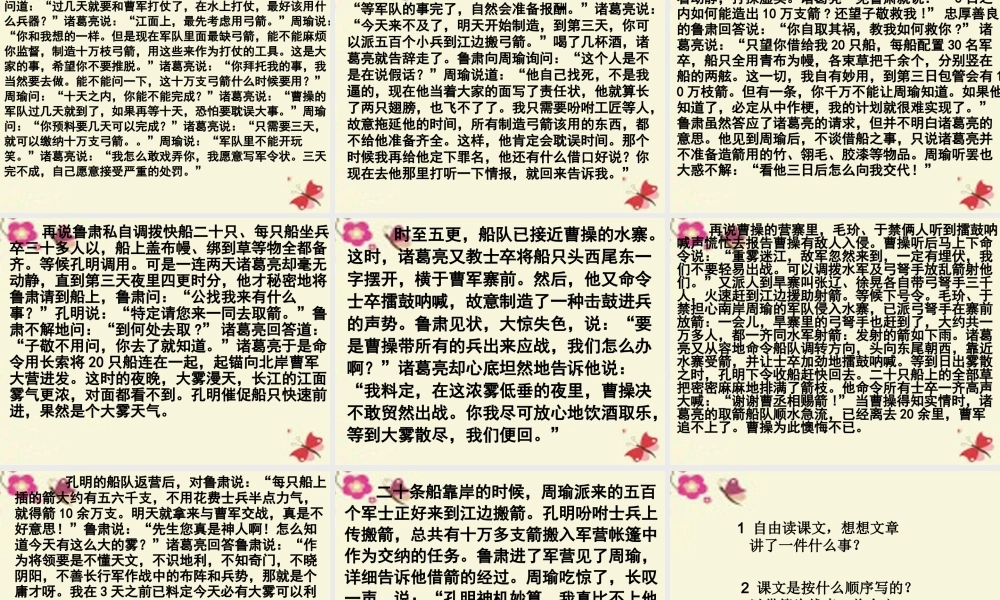 问道：“过几天就要和曹军打仗了，在水上打仗，最好该用什
么兵器？”诸葛亮说：“江面上，最先考虑用弓箭。”周瑜说：
“你和我想的一样。但是现在军队里面最缺弓箭，能不能麻烦
你监督，制造十万枝弓箭，用这些来作为打仗的工具。这是大
家的事，希望你不要推脱。”诸葛亮说：“你拜托我的事，我
当然要去做。能不能问一下，这十万支弓箭什么时候要用？”
周瑜问：“十天之内，你能不能完成？”诸葛亮说：“曹操的
军队过几天就到了，如果再等十天，恐怕要耽误大事。”周瑜
问：“你预料要几天可以完成？”诸葛亮说：“只需要三天，
就可以缴纳十万支弓箭。。”周瑜说：“军队里不能开玩
笑。”诸葛亮说：“我怎么敢戏弄你，我愿意写军令状。三天
完不成，自己愿意接受严重的处罚。”
“等军队的事完了，自然会准备报酬。”诸葛亮说：
“今天来不及了，明天开始制造，到第三天，你可
以派五百个小兵到江边搬弓箭。”喝了几杯酒，诸
葛亮就告辞走了。鲁肃问周瑜询问：“这个人是不
是在说假话？”周瑜说道：“他自己找死，不是我
逼的，现在他当着大家的面写了责任状，他就算长
了两只翅膀，也飞不了了。我只需要吩咐工匠等人，
故意拖延他的时间，所有制造弓箭该用的东西，都
不给他准备齐全。这样，他肯定会耽误时间。那个
时候我再给他定下罪名，他还有什么借口好说？你
现在去他那里打听一下情报，就回来告诉我。”
内如何能造出 10 万支箭？还望子敬救我！” 忠厚善良
的鲁肃回答说：“你自取其祸，教我如何救你？”诸
葛亮说：“只望你借给我 20 只船，每船配置 30 名军
卒，船只全用青布为幔，各束草把千余个，分别竖在
船的两舷。这一切，我自有妙用，到第三日包管会有 1
0 万枝箭。但有一条，你千万不能让周瑜知道。如果他
知道了，必定从中作梗，我的计划就很难实现了。”
鲁肃虽然答应了诸葛亮的请求，但并不明白诸葛亮的
意思。他见到周瑜后，不谈借船之事，只说诸葛亮并
不准备造箭用的竹、翎毛、胶漆等物品。周瑜听罢也
大惑不解：“看他三日后怎么向我交代！”
再说鲁肃私自调拨快船二十只、每只船坐兵
卒三十多人以，船上盖布幔、绑到草等物全都备
齐。等候孔明调用。可是一连两天诸葛亮却毫无
动静，直到第三天夜里四更时分，他才秘密地将
鲁肃请到船上，鲁肃问：“公找我来有什么
事？”孔明说：“特定请您来一同去取箭。”鲁
肃不解地问：“到何处去取？” 诸葛亮回答道：
“子敬不用问，你去了就知道。”诸葛亮于是命
令用长索将 20 只船连在一起，起锚向北岸曹军
大营进发。这时的夜晚，大雾漫天，长江的江面
雾气更浓，对面都看不到。孔明催促船只快速前
进，果然是个大雾天气。
时至五更，船队已接近曹操的水寨。
这时，诸葛亮又教士卒将船只头西尾东一
字摆开，横于曹军寨前。然后，他又命令
士卒擂鼓呐喊，故意制造了一种击鼓进兵
的声势。鲁肃见状，大惊失色，说：“要
是曹操带所有的兵出来应战，我们怎么办
啊？” 诸葛亮却心底坦然地告诉他说：
“我料定，在这浓雾低垂的夜里，曹操决
不敢贸然出战。你我尽可放心地饮酒取乐，
等到大雾散尽，我们便回。”
再说曹操的营寨里，毛玠、于禁俩人听到擂鼓呐
喊声慌忙去报告曹操有敌人入侵。曹操听后马上下命
令说：“重雾迷江，敌军忽然来到，一定有埋伏，我
们不要轻易出战。可以调拨水军及弓弩手放乱箭射他
们。”又派人到旱寨叫张辽、徐晃各自带弓弩手三千
人，火速赶到江边援助射箭。等候下号令。毛玠、于
禁担心南岸周瑜的军队侵入水寨，已派弓弩手在寨前
放箭：一会儿，旱寨里的弓弩手也赶到了，大约共一
万多人，都一齐同水军射箭：发射的箭如下雨。诸葛
亮又从容地命令船队调转方向，头向东尾朝西，靠近
水寨受箭，并让士卒加劲地擂鼓呐喊。等到日出雾散
之时，孔明下令收船赶快回去。二十只船上的全部草
把密密麻麻地排满了箭枝。他命令所有士卒一齐高声
大喊：“谢谢曹丞相赐箭！” 当曹操得知实情时，诸
葛亮的取箭船队顺水急流，已经离去 20 余里，曹军
追不上了。曹操为此懊悔不已。
孔明的船队返营后，对鲁肃说：“每只船上
插的箭大约有五六千支，不用花费士兵半点力气，
就得箭 10 余万支。明天就拿来与曹军交战，真是不
好意思！”鲁肃说：“先生您真是神人啊！怎么知
道今天有这么大的雾？”诸葛亮回答鲁肃说：“作
为将领要是不懂天文，不识地利，不知奇门，不晓
阴阳，不善长行军作战中的布阵和兵势，那就是个
庸才呀。我在 3 天之前已料定今天必有大雾可以利
二十条船靠岸的时候，周瑜派来的五百
个军士正好来到江边搬箭。孔明吩咐士兵上
传搬箭，总共有十万多支箭搬入军营帐篷中
作为交纳的任务。鲁肃进了军营见了周瑜，
详细告诉他借箭的经过。周瑜吃惊了，长叹
一声，说：“孔明神机妙算，我真比不上他
1 自由读课文，想想文章
讲了一件什么事？
2 课文是按什么顺序写的？